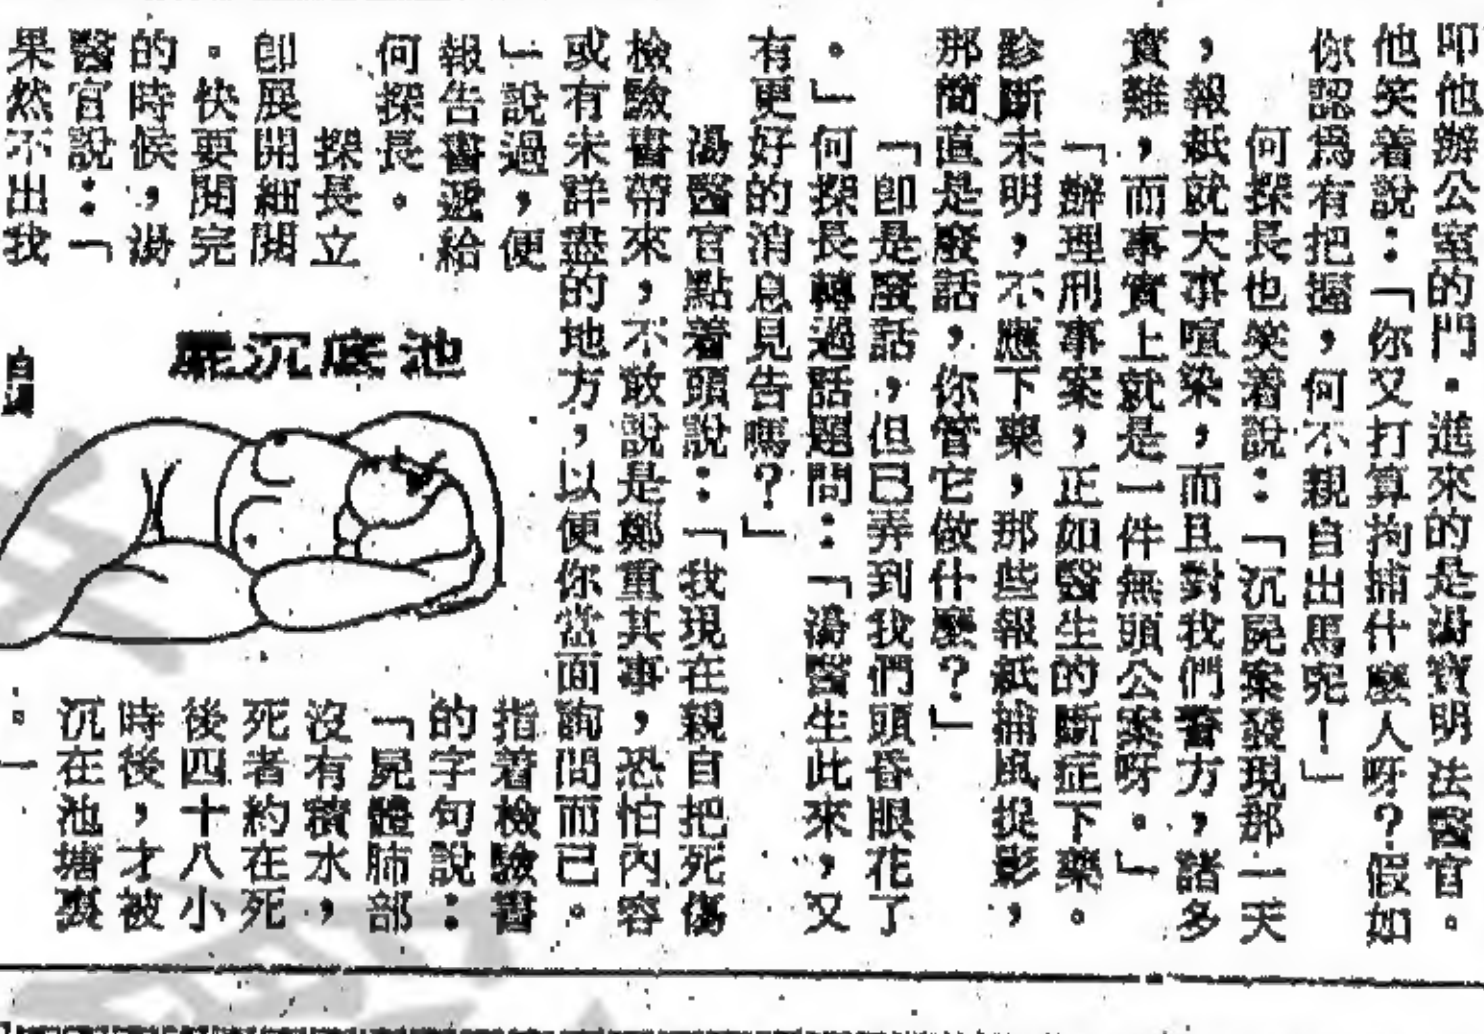 叩他辦公室的門。進來的是湯寶明法醫官。
他笑着說：「你又打算拘捕什麼人呀？假如
你認爲有把握，何不親自出馬呢！」
何探長也笑着說：「沉屍案發現那一天
，報紙就大事喧染，而且對我們警方，諸多
責難，而事實上就是一件無頭公案呀。」
「辦理刑事案，正如醫生的斷症下藥。
診斷未明，不應下藥，那些報紙捕風捉影，
那簡直是廢話，你管它做什麼？」
「卽是廢話，但已弄到我們頭昏眼花了
。」何探長轉過話題問：「湯醫生此來，又
有更好的消息見告嗎？」
湯醫官點着頭說：「我現在親自把死傷
檢驗書帶來，不敢說是鄭重其事，恐怕內容
或有未詳盡的地方，以便你當面詢問而已。
」說過，便
報告書遞給
何探長。
探長立
卽展開細閱
。快要閱完
的時候，湯
醫官說：「
果然不出我
池底沉屍
指着檢驗書
的字句說：
「屍體肺部
沒有積水，
死者約在死
後四十八小
時後，才被
沉在池塘裏
。